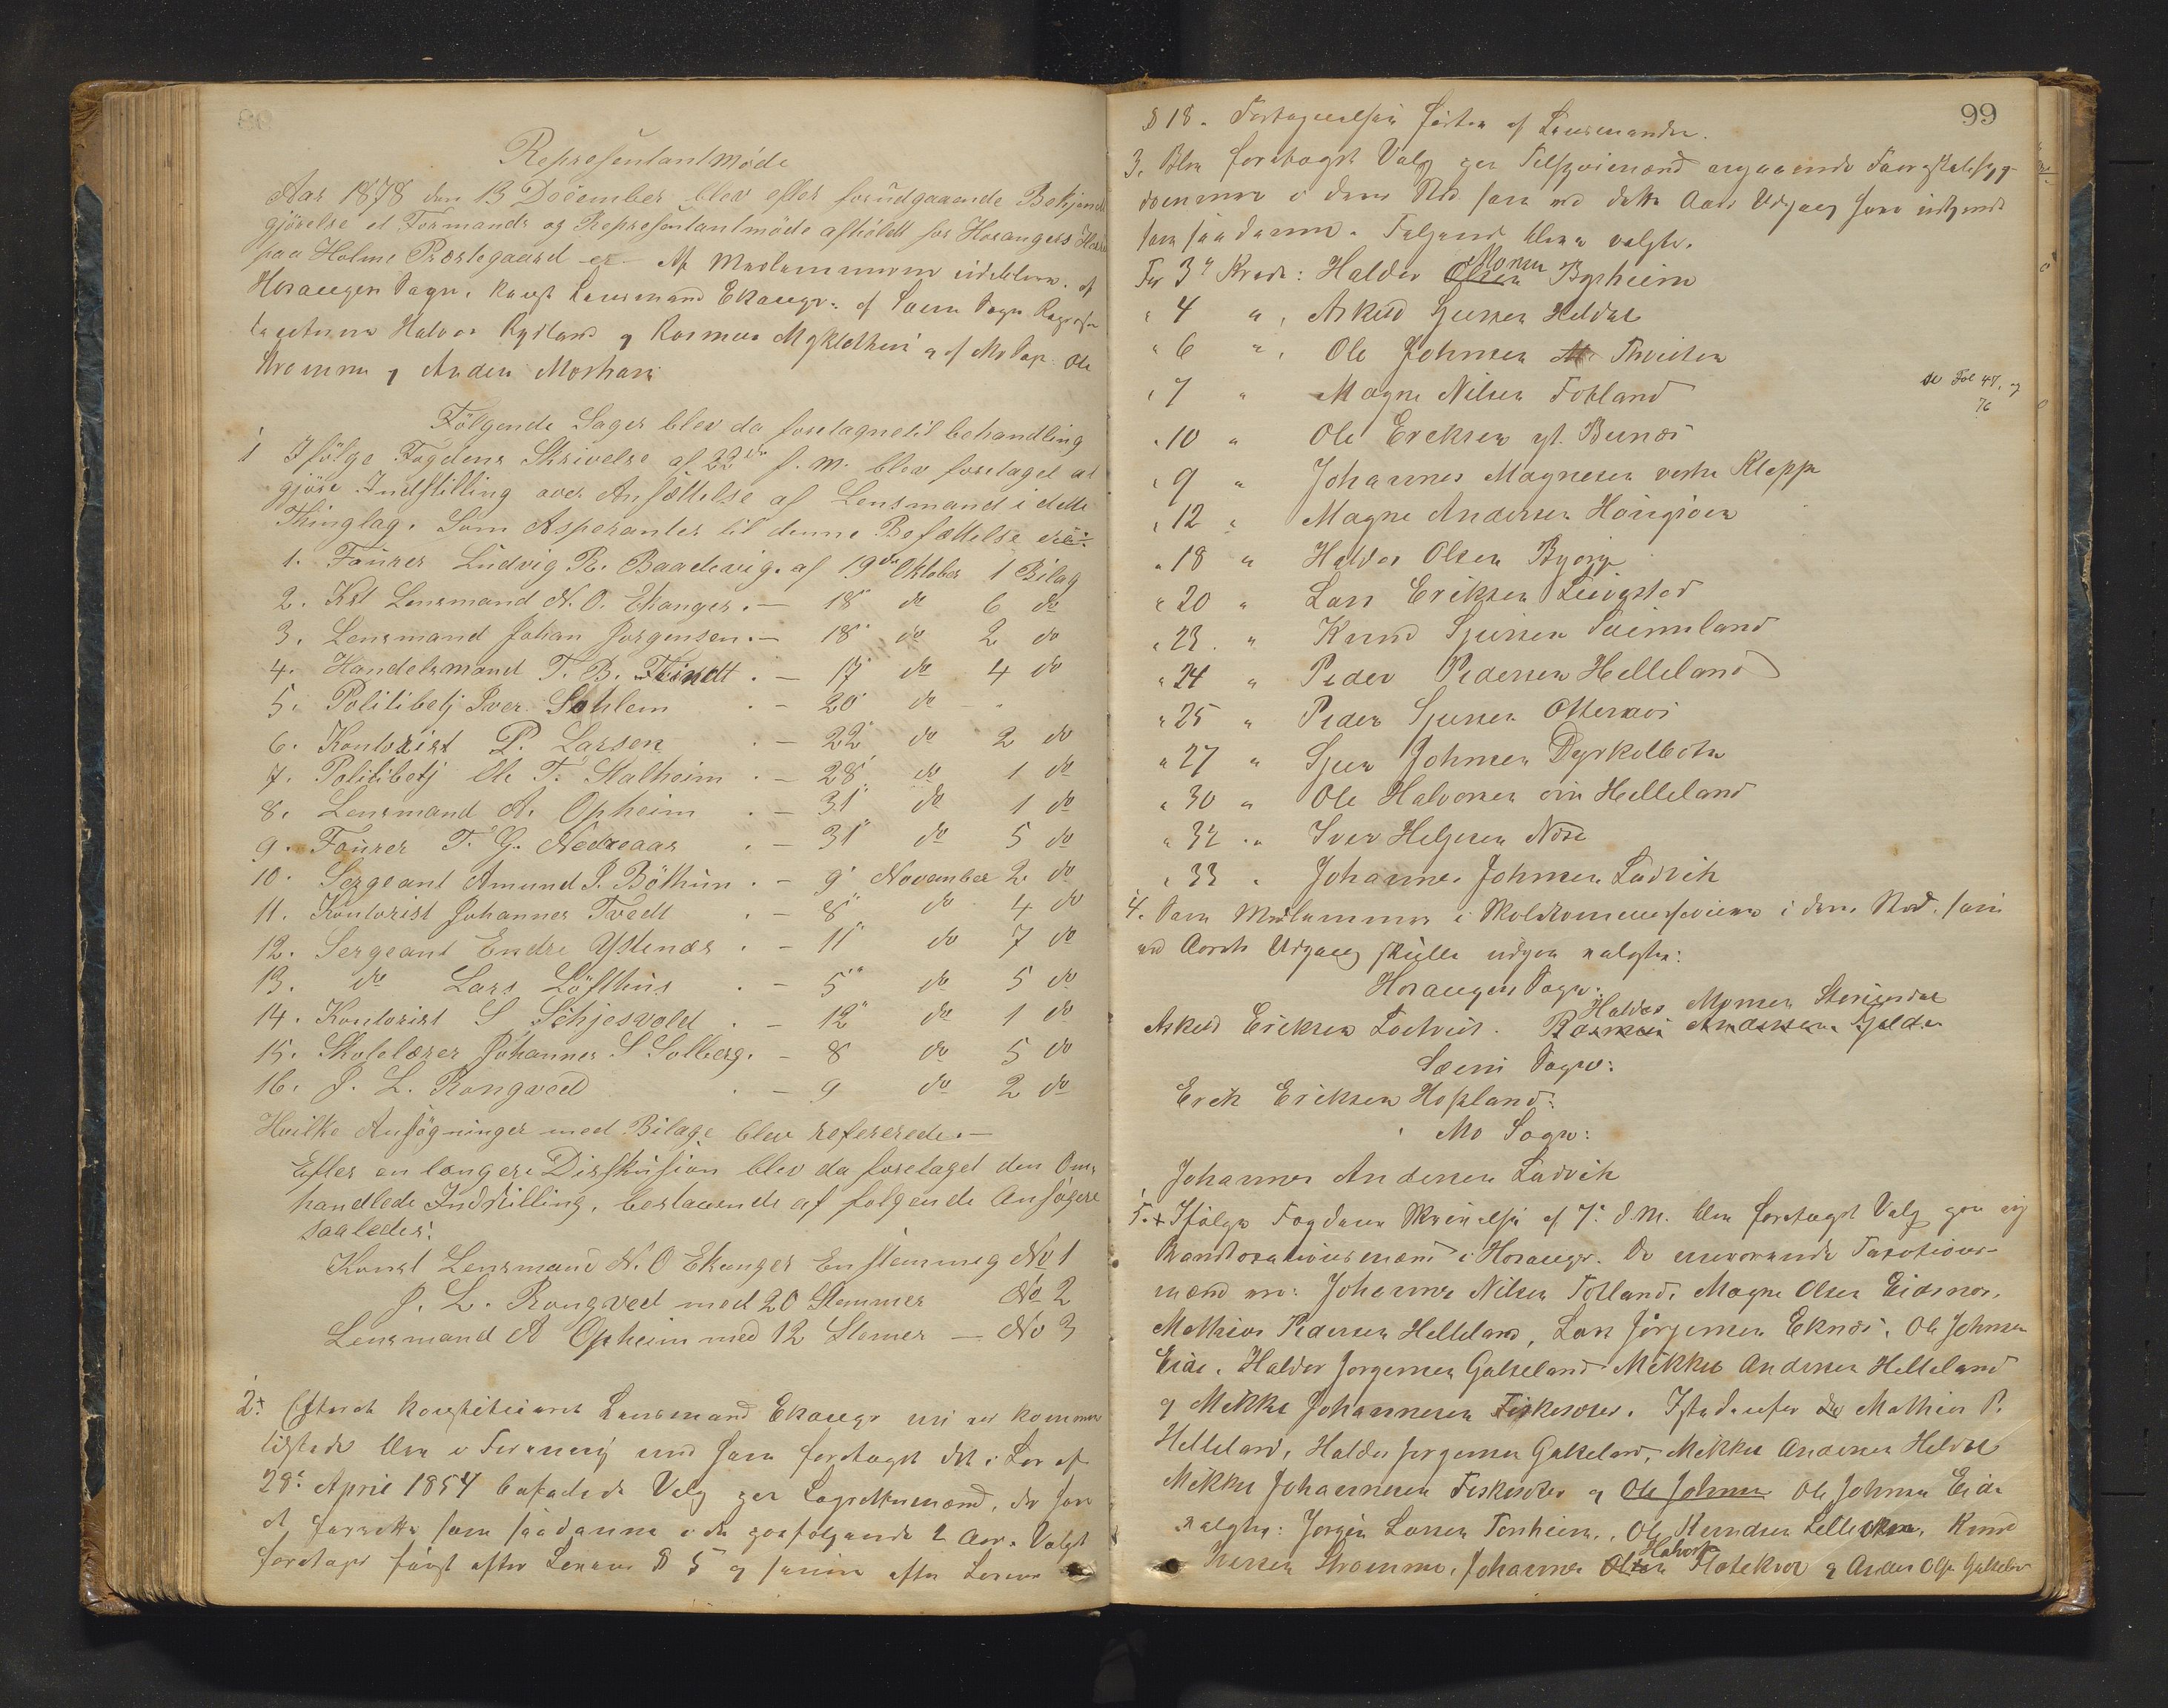 Repræsentantmöde
Aar 1878 den 13 December blev efter forudgaaende Bekjendt
gjörelse et Formands og Repræsentantmöde afholdt for Hosangers
paa Holme Præstegaard Af Medlemmerne udeblev. af
Hosangers Sogn. Konst Lensmand Ekanger. af Sæim Sogn Repræsen
tanterne Halvor Rydland og Rasmus Myklethun og af Mo Sogn Ole
Stromme og Anders Mostraum
Fölgende Sager blev da foretagne til behandling
1 Ifölge Fogdens Skrivelse af 22de f. m. blev foretaget at
gjöre Indstilling over Ansættelse af Lensmand i dette
Thinglag. Som Asperanter til denne Besættelse ere:
1. Fourer Ludvig R. Baadevig. af 19de Oktober 1 Bilag
2. Kst Lensmand N. O. Ekanger. — 18" do 6 do
3. Lensmand Johan Jörgensen. — 18" do 2 do
4. Handelsmand T. B. Tvindt . — 17" do 4 do
5. Politibetj Iver Sohlem . — 20" do .
6. Kontorist P. Larsen . — 22" do 2 do
7. Politibetj Ole T. Stalheim . — 28" do 1 do
8. Lensmand A. Opheim . — 31" do 1 do
9. Fourer T. G. Nedreaas . — 31" do 5 do
10. Sergeant Amund P. Böthun . — 9" November 2 do
11. Kontorist Johannes Tvedt . — 8" do 4 do
12. Sergeant Endre Ystenæs . — 11" do 7 do
13. do Lars Löfthus . — 5" do 5 do
14. Kontorist S Schjesvold . — 12" do 1 do
15. Skolelærer Johannes S Solberg. — 8 do 5 do
16. J. L. Rongved . — 9 do 2 do
Hvilke Ansögninger med Bilage blev refererede. —
Efter en længere Diskusion blev da foretaget den Om-
handlede Indstilling, bestaaende af folgende Ansögere
saaledes:
Konst Lensmand N. O Ekanger Enstemmig No 1
J. L. Rongved med 20 Stemmer No 2
Lensmand A Opheim med 12 Stemer — No 3
2. Efterat konstitueret Lensmand Ekanger nu er kommen
tilstede blev i Forening med ham foretaget det i Lov af
28de April 1854 befalede Valg paa Lagrettesmænd, der skal
forrette som saadanne i de paafølgende 2 Aar. Valget
foretages först efter Lovens § 5 og senere efter Lovens
99
§ 18. Fortegnelsen föres af Lensmanden.
3. Blev foretaget Valg paa Tilsynsmænd angaaende Faareskabsyg-
dommen i deres Sted som ved dette Aars Udgang skal udgaae
som saadanne. Følgende bleve valgte.
For 3de Kreds: Haldor Olsen Monsen Bysheim
" 4 " Askild Sjursen Heldal
" 6 " Ole Johnsen Thveiten
" 7 " Magne Nilsen Fotland
se Fol 47, og
76
" 10 " Ole Ericksen yt. Bernæs
" 9 " Johannes Magnesen vestre Kleppe
" 12 " Magne Andersen
" 18 " Haldor Olsen Bjørge
" 20 " Lars Eriksen
" 23. " Knud Sjursen
" 24 " Peder Pedersen Helleland
" 25 " Peder Sjursen Otternæs
" 27 " Sjur Johnsen Dyrkolbotn
" 30 " Ole Halvorsen Helleland
" 32 " Iver Helgesen Nöse
" 33 " Johannes Johnsen Ladvik
4. Som Medlemmer i Skolekommissionen i deres Sted, som
ved Aarets Udgang skulle udgaa valgtes:
Hosangers Sogn:
Haldor Monsen
Askild Ericksen Rasmus Andersen
Sæim Sogn:
Erick Ericksen Hopland:
Mo Sogn:
Johannes Andersen Ladvik
5. Ifølge Fogdens Skrivelse af 7de d.M. blev foretaget Valg paa ny
Brandtaxationsmænd i Hosanger. De nuværende Taxations-
mænd ere: Johannes Nilsen Totland, Magne Olsen Eidsnes,
Mathias Pedersen Helleland, Lars Jörgensen Eknæs, Ole Johnsen
Eide, Haldor Jorgensen Galteland Mikkel Andersen Helleland
og Mikkel Johannesen Fiskesæter. Istedenfor Mathias P.
Helleland, Haldor Jorgensen Galteland, Mikkel Andersen Heldal
Mikkel Johannesen Fiskesæter og Ole Johnsen Ole Johnsen Eide
valgtes: Jörgen Larsen Tonheim, Ole Knudsen Knud
Iversen Stromme, Johannes Olsen Halvors og Anders Ols Galteland